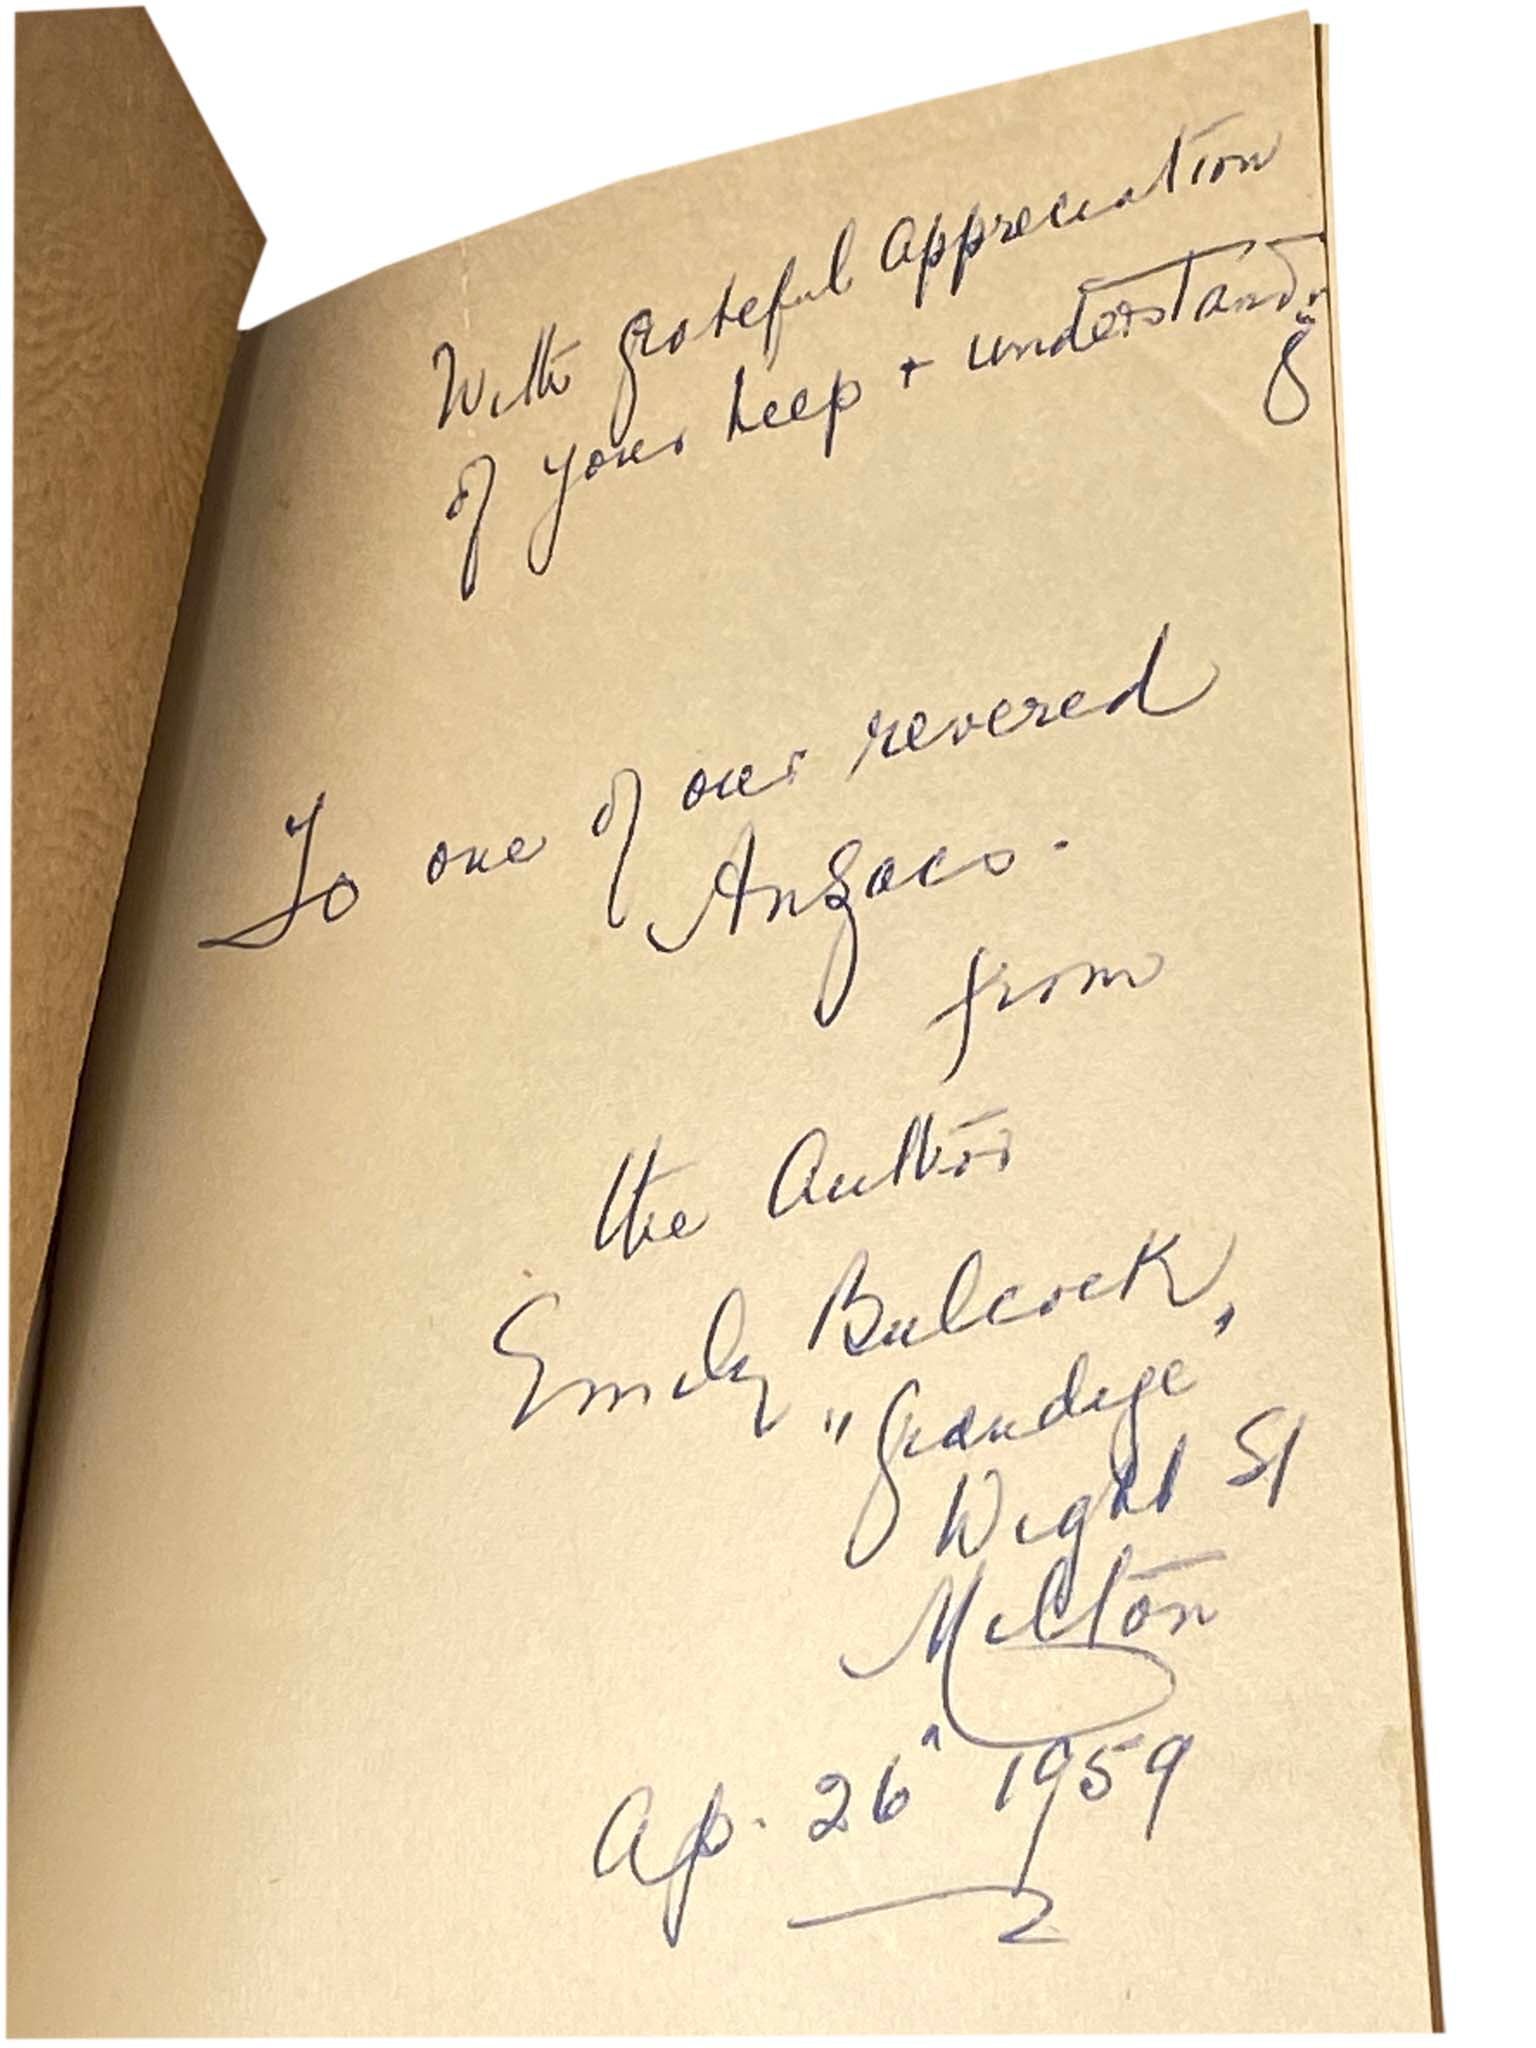 With grateful appreciation
of your help + understanding
To one of our revered
Anzacs.
from
the Author
Emily Bulcock,
"Grandige"
Wight St
Milton
Ap. 26" 1959